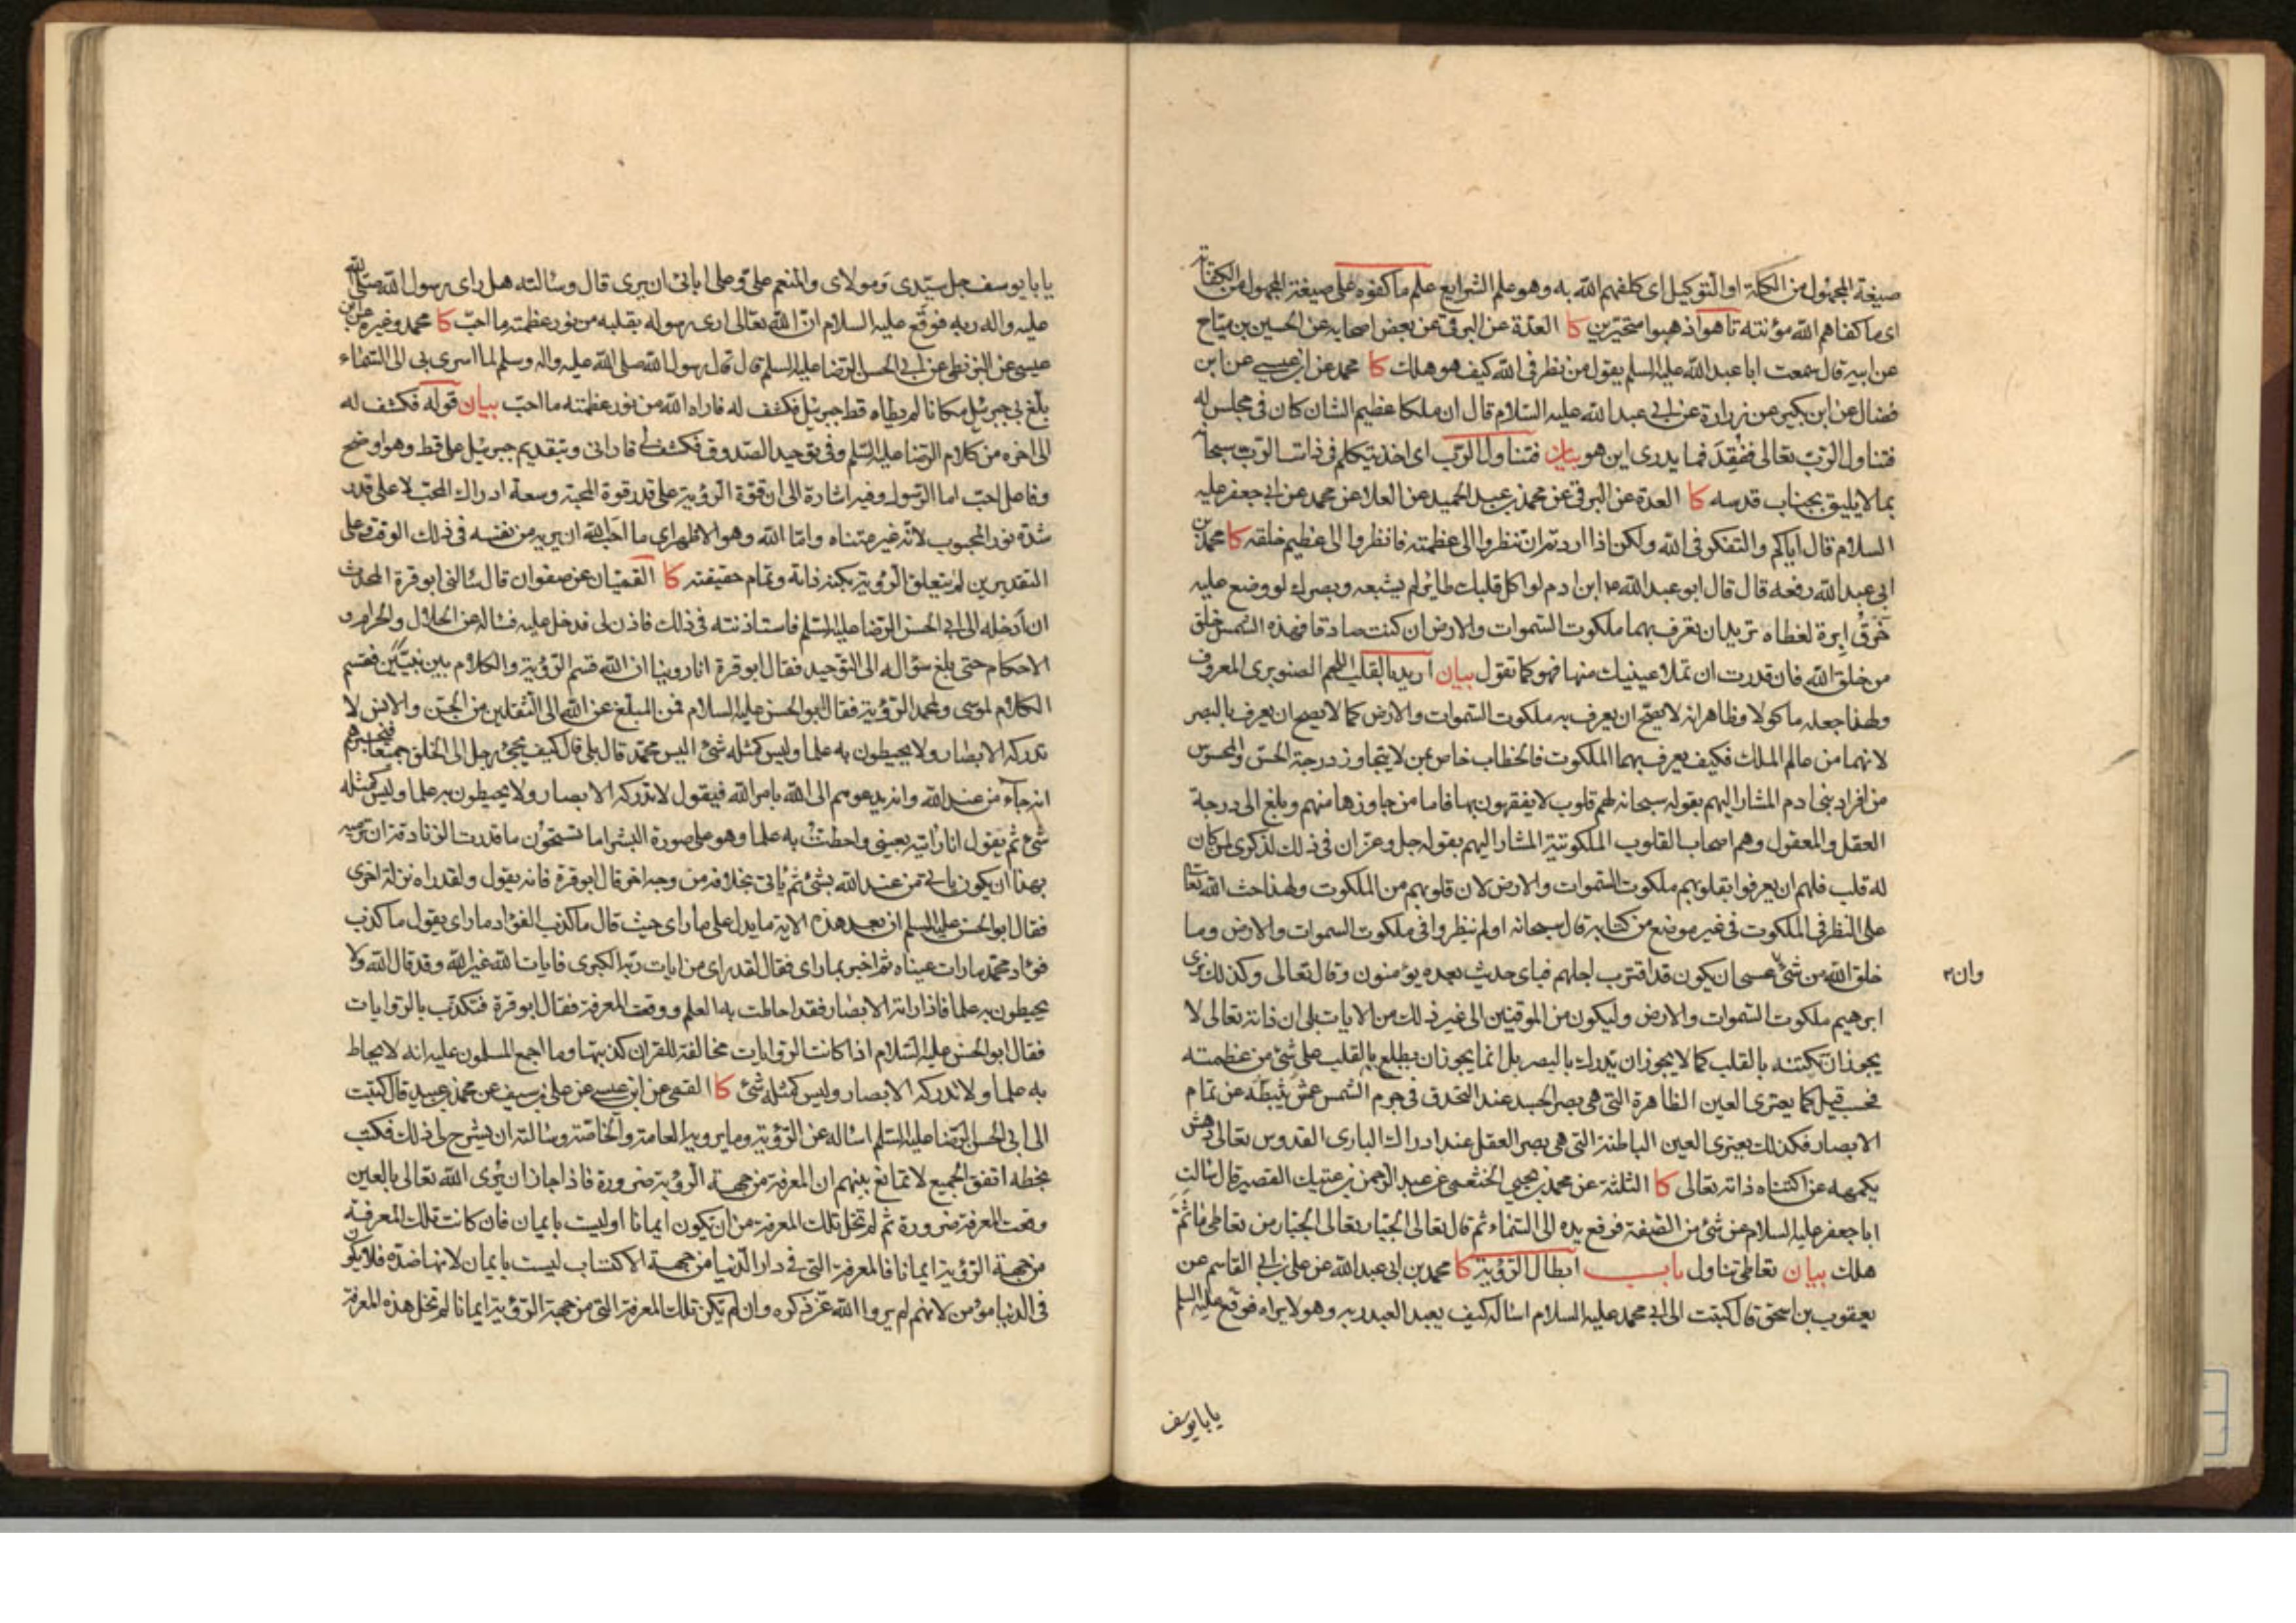 صيغة المجهول من الكلة او التوكيل اى كلفهم الله به وهو علم الشرايع علم ما كفوه على صيغة المجهول من الكفاية
اى ما كفاهم الله مؤنته تاهوا ذهبوا متحيرين كا العدة عن البرقى عن بعض اصحابه عن الحسين بن مياح
عن ابيه قال سمعت ابا عبد الله عليه السلم يقول من نظر فى الله كيف هو هلك كا محمد عن ابن عيسى عن ابن
فضال عن ابن بكير عن زرارة عن ابى عبد الله عليه السلام قال ان ملكا عظيم الشان كان فى مجلس له
فتناول الرّبّ تعالى ففُقِدَ فما يدرى اين هو بيان فتناول الرّب اى اخذ يتكلم فى ذات الرّب سبحانه
بما لا يليق بجناب قدسه كا العدة عن البرقى عن محمد بن عبد الحميد عن العلا عن محمد عن ابى جعفر عليه
السلام قال اياكم والتفكر فى الله ولكن اذا اردتم ان تنظروا الى عظمته فانظروا الى عظيم خلقه كا محمد بن
ابى عبد الله رفعه قال قال ابو عبد الله ع ابن ادم لو اكل قلبك طاير لم يشبعه وبصرك لو وضع عليه
خَرْقُ ابرة لغطاه تريد ان تعرف بهما ملكوت السّموات والارض ان كنت صادقا فهذه الشمس خلق
من خلق الله فان قدرت ان تملا عينيك منها فهو كما تقول بيان اريد بالقلب اللحم الصنوبرى المعروف
ولهذا جعله ماكولا وظاهر انه لا يصحّ ان يعرف به ملكوت السّموات والارض كما لا يصح ان يعرف بالبصر
لانهما من عالم الملك فكيف يعرف بهما الملكوت فالخطاب خاص بمن لا يتجاوز درجة الحسّ والمحسوس
من افراد بنى ادم المشار اليهم بقوله سبحانه لهم قلوب لا يفقهون بها فاما من جاوزها منهم وبلغ الى درجة
العقل والمعقول وهم اصحاب القلوب الملكوتية المشار اليهم بقوله جل وعز ان فى ذلك لذكرى لمن كان
له قلب فلهم ان يعرفوا بقلوبهم ملكوت السّموات والارض لان قلوبهم من الملكوت ولهذا حث الله تعالى
على النظر فى الملكوت فى غير موضع من كتابه قال سبحانه اولم ينظروا فى ملكوت السموات والارض وما
خلق الله من شئ عسى ان يكون قد اقترب اجلهم فباى حديث بعده يؤمنون وقال تعالى وكذلك نرى
وان
ابرهيم ملكوت السّموات والارض وليكون من الموقنين الى غير ذلك من الايات بلى ان ذاته تعالى لا
يجوز ان تكتنه بالقلب كما لا يجوز ان تدرك بالبصر بل انما يجوز ان يطلع بالقلب على شئ من عظمته
فحسب قيل كما يعترى العين الظاهرة التى هى بصر الجسد عند التحدق فى جرم الشمس عمش يثبطه عن تمام
الابصار فكذلك يعترى العين الباطنة التى هى بصر العقل عند ادراك البارى القدوس تعالى دهش
يكمهه عن اكتناه ذاته تعالى كا الثلثة عن محمد بن يحيى الخثعمى عن عبد الرحمن بن عتيك القصير قال سالت
ابا جعفر عليه السلام عن شئ من الصّفة فرفع يده الى السّماء ثم قال تعالى الجبّار تعالى الجبّار من تعاطى ما ثَمَّ
هلك بيان تعاطى تناول باب ابطال الرّؤية كا محمد بن ابى عبد الله عن على بن ابى القاسم عن
يعقوب بن اسحق قال كتبت الى ابى محمد عليه السلام اساله كيف يعبد العبد ربه وهو لا يراه فوقع عليه السلم
يا بايوسف
يا بايوسف جل سيّدى ومولاى والمنعم علىّ وعلى ابائى ان يرى قال وسالته هل راى رسول الله صلى الله
عليه واله ربه فوقع عليه السلام انّ الله تعالى ارى رسوله بقلبه من نور عظمته ما احبّ كا محمد وغيره عن ابن
عيسى عن البزنطى عن ابى الحسن الرّضا عليه السلم قال قال رسول الله صلى الله عليه واله وسلم لما اسرى بى الى السّماء
بلغ بى جبرئيل مكانا لم يطاه قط جبرئيل فكشف له فاراه الله من نور عظمته ما احبّ بيان قوله فكشف له
الى اخره من كلام الرّضا عليه السّلم وفى توحيد الصّدوق فكشف لى فارانى وبتقديم جبرئيل على قط وهو اوضح
وفاعل احبّ اما الرّسول وفيه اشارة الى ان قوّة الرّؤية على قدر قوة المحبّة وسعة ادراك المحبّ لا على قدر
شدة نور المحبوب لانّه غير متناه وامّا الله وهو الاظهر اى ما احبّ الله ان يريه من نفسه فى ذلك الوقت وعلى
التقديرين لم يتعلق الرّؤية بكنه ذاته وتمام حقيقته كا القميّان عن صفوان قال سالنى ابو قرة المحدث
ان ادخله الى ابى الحسن الرّضا عليه السّلم فاستاذنته فى ذلك فاذن لى فدخل عليه فساله عن الحلال والحرام و
الاحكام حتى بلغ سؤاله الى التّوحيد فقال ابو قرة انا روينا ان الله قسم الرّؤية والكلام بين نبيّين فقسم
الكلام لموسى ولمحمد الرّؤية فقال ابو الحسن عليه السلام فمن المبلّغ عن الله الى الثّقلين من الجنّ والانس لا
تدركه الابصار ولا يحيطون به علما وليس كمثله شئ اليس محمّد قال بلى قال كيف يجئ رجل الى الخلق جميعا فيخبرهم
انه جاء من عند الله وانه يدعوهم الى الله بامر الله فيقول لا تدركه الابصار ولا يحيطون به علما وليس كمثله
شئ ثم يقول انا رأيته بعينى واحطتُ به علما وهو على صورة البشر اما تستحُون ما قدرت الزنادقة ان ترميه
بهذا ان يكون ياتى من عند الله بشئ ثم ياتى بخلافه من وجه اخر قال ابو قرة فانه يقول ولقد راه نزلة اخرى
فقال ابو الحسن عليه السلم ان بعد هذه الاية ما يدل على ما راى حيث قال ما كذب الفؤاد ما راى يقول ما كذب
فؤاد محمّد ما رات عيناه ثم اخبر بما راى فقال لقد راى من ايات ربّه الكبرى فايات الله غير الله وقد قال الله ولا
يحيطون به علما فاذا راته الابصار فقد احاطت به العلم ووقعت المعرفة فقال ابو قرة فتكذّب بالرّوايات
فقال ابو الحسن عليه السّلام اذا كانت الرّوايات مخالفة للقران كذبتها وما اجمع المسلمون عليه انه لا يحاط
به علما ولا تدركه الابصار وليس كمثله شئ كا القمى عن ابن عيسى عن على بن سيف عن محمد بن عبيد قال كتبت
الى ابى الحسن الرّضا عليه السّلم اساله عن الرّؤية وما يرويه العامة والخاصّة وسالته ان يشرح لى ذلك فكتب
بخطه اتفق الجميع لا تمانع بينهم ان المعرفة من جهة الرّؤية ضرورة فاذا جاز ان يُرى الله تعالى بالعين
وقعت المعرفة ضرورة ثم لم تخل تلك المعرفة من ان يكون ايمانا او ليست بايمان فان كانت تلك المعرفة
من جهة الرّؤية ايمانا فالمعرفة التى فى دار الدّنيا من جهة الاكتساب ليست بايمان لانها ضدّه فلا يكون
فى الدّنيا مؤمن لانهم لم يروا الله عزّ ذكره وان لم تكن تلك المعرفة التى من جهة الرّؤية ايمانا لم تخل هذه المعرفة